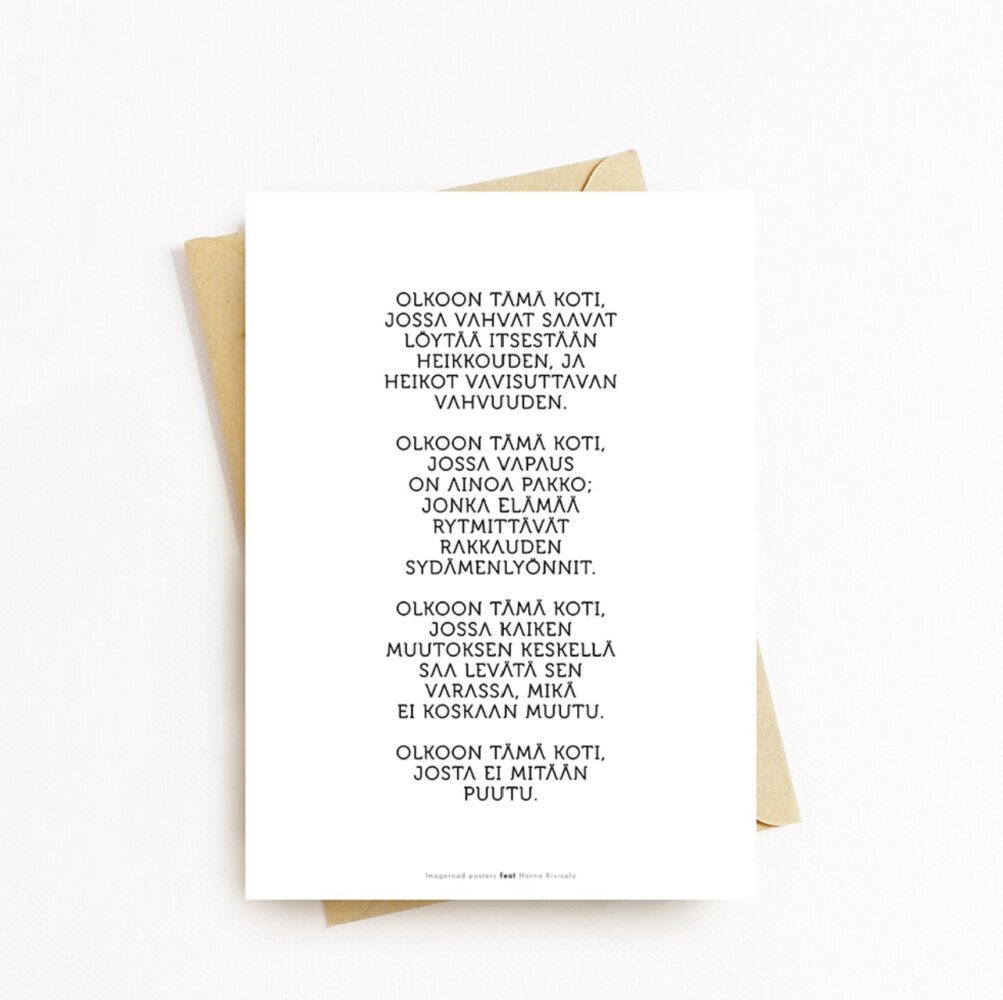 OLKOON TÄMÄ KOTI,
JOSSA VAHVAT SAAVAT
LÖYTÄÄ ITSESTÄÄN
HEIKKOUDEN, JA
HEIKOT VAVISUTTAVAN
VAHVUUDEN.
OLKOON TÄMÄ KOTI,
JOSSA VAPAUS
ON AINOA PAKKO;
JONKA ELÄMÄÄ
RYTMITTÄVÄT
RAKKAUDEN
SYDÄMENLYÖNNIT.
OLKOON TÄMÄ KOTI,
JOSSA KAIKEN
MUUTOKSEN KESKELLÄ
SAA LEVÄTÄ SEN
VARASSA, MIKÄ
EI KOSKAAN MUUTU.
OLKOON TÄMÄ KOTI,
JOSTA EI MITÄÄN
PUUTU.
Imageroad posters feat Hanna Kivisalo